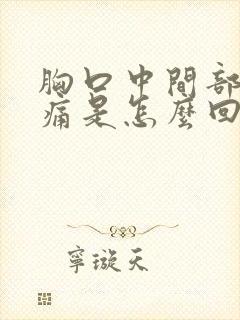 胸口中間部
痛是怎麼回
寧璇天